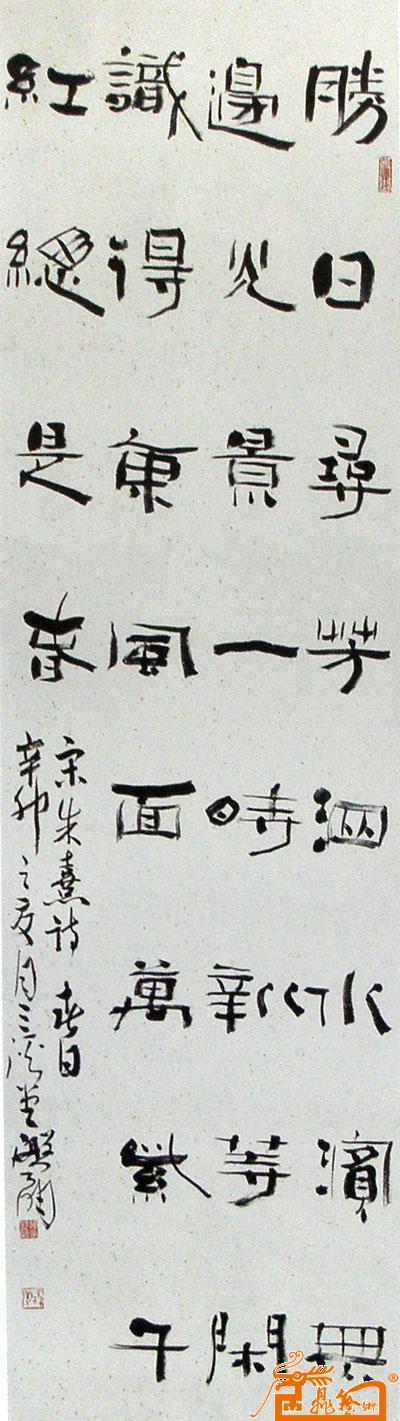 勝日尋芳泗水濱無
邊光景一時新等閑
識得東風面萬紫千
紅總是春
宋朱熹詩 春日
辛卯之夏月三堂